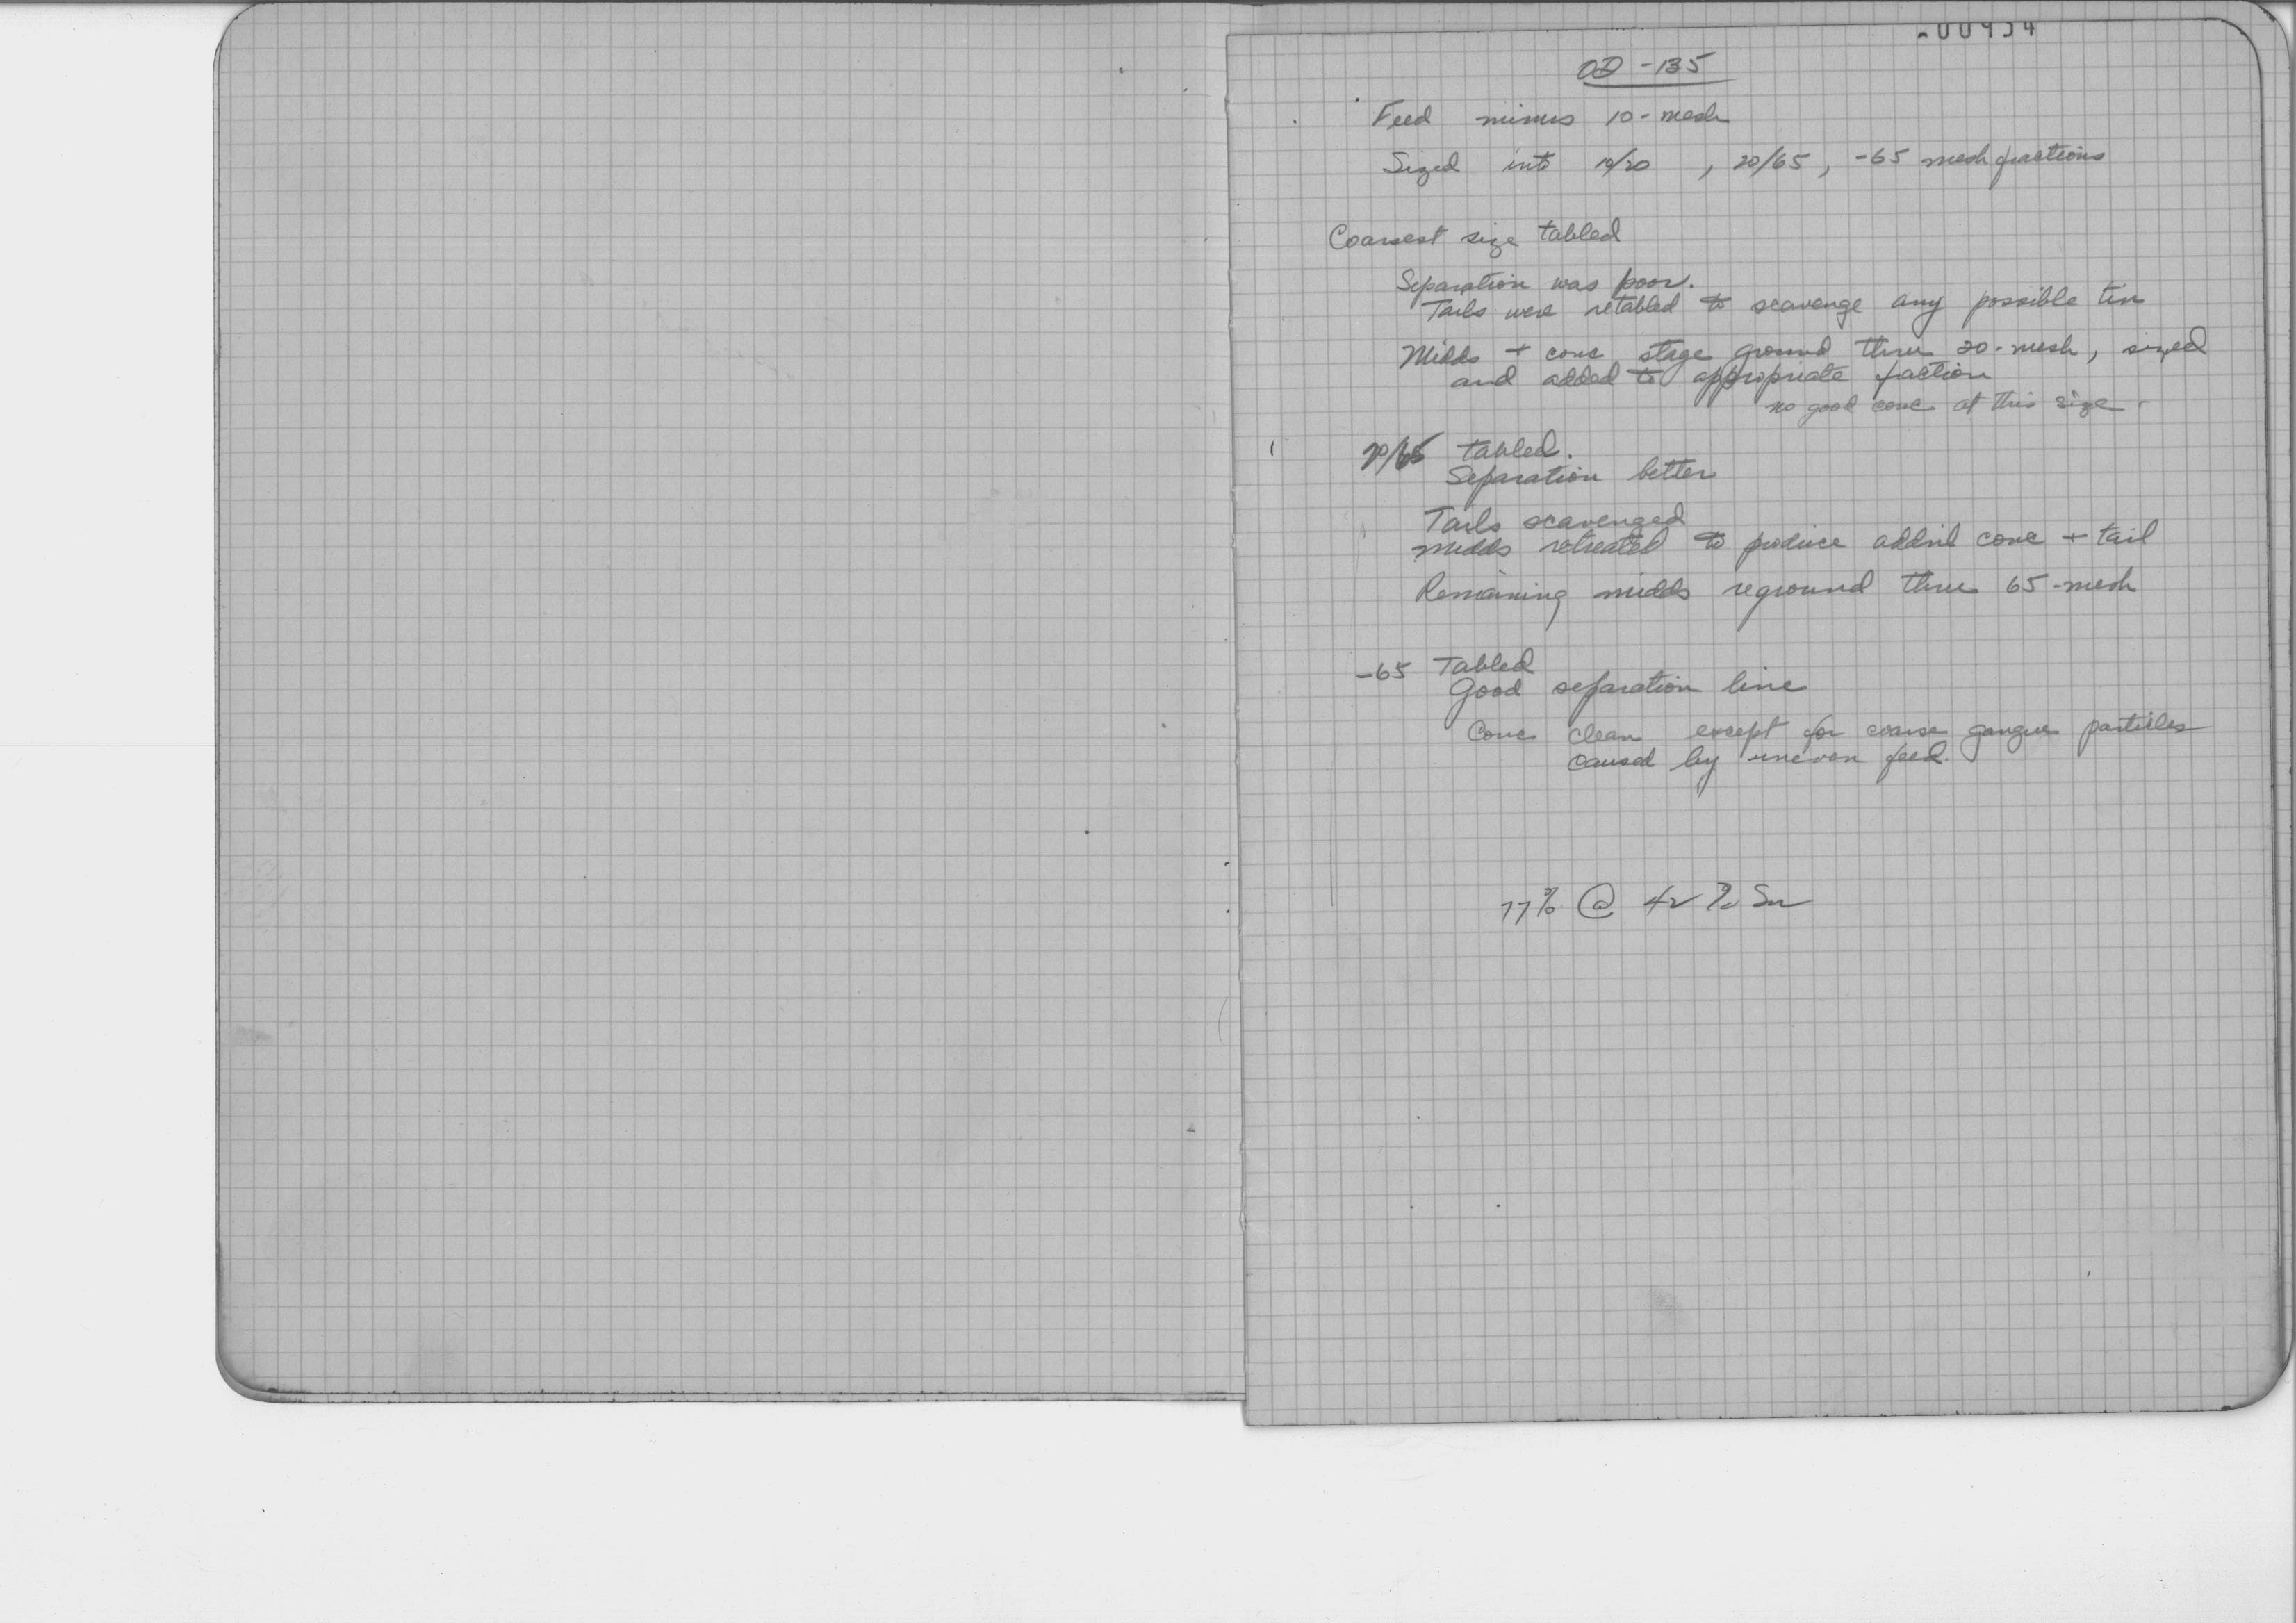 OD-135
Feed minus 10-mesh
Sized into 10/20, 20/65, -65 mesh fractions
Coarsest size tabled
Separation was poor.
Tails were retabled to scavenge any possible tin
Midds + conc stage ground thru 20-mesh, sized
and added to appropriate faction
no good conc at this size.
20/65 tabled.
Separation better
Tails scavenged
midds retreated to produce addnl conc + tail
Remaining midds reground thru 65-mesh
-65 Tabled
Good separation line
Conc clean except for coarse gangue particles
caused by uneven feed.
77% @ 42% Sn